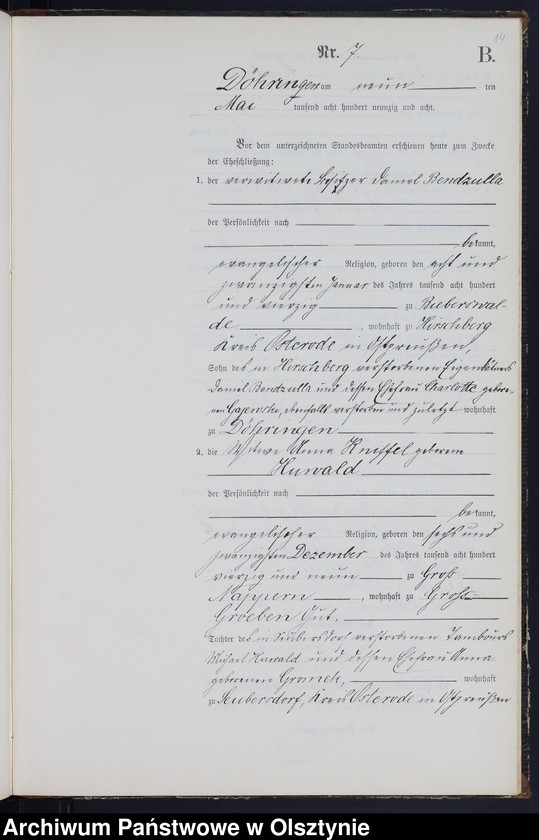 14
Nr. 7.
B.
Döhringen am neun ten
Mai tausend acht hundert neunzig und acht.
Vor dem unterzeichneten Standesbeamten erschienen heute zum Zwecke
der Eheschließung:
1. der verwitwete Besitzer Daniel Bendzulla
der Persönlichkeit nach
bekannt,
evangelischer Religion, geboren den acht und
zwanzigsten Januar des Jahres tausend acht hundert
und vierzig zu Bieberswal-
de, wohnhaft zu Hirschberg
Kreis Osterode in Ostpreußen,
Sohn des in Hirschberg verstorbenen Eigenkätners
Daniel Bendzulla und dessen Ehefrau Charlotte gebore-
nen Gajewski, ebenfalls verstorben und zuletzt wohnhaft
zu Döhringen
2. die Witwe Anna Kniffel geborene
Huwald
der Persönlichkeit nach
bekannt,
evangelischer Religion, geboren den sechs und
zwanzigsten Dezember des Jahres tausend acht hundert
vierzig und neun zu Groß
Nappern, wohnhaft zu Groß
Groeben Gut,
Tochter des in verstorbenen Tambours
Michael Huwald und dessen Ehefrau Anna
geborenen wohnhaft
zu Kreis Osterode in Ostpreußen
Archiwum Państwowe w Olsztynie